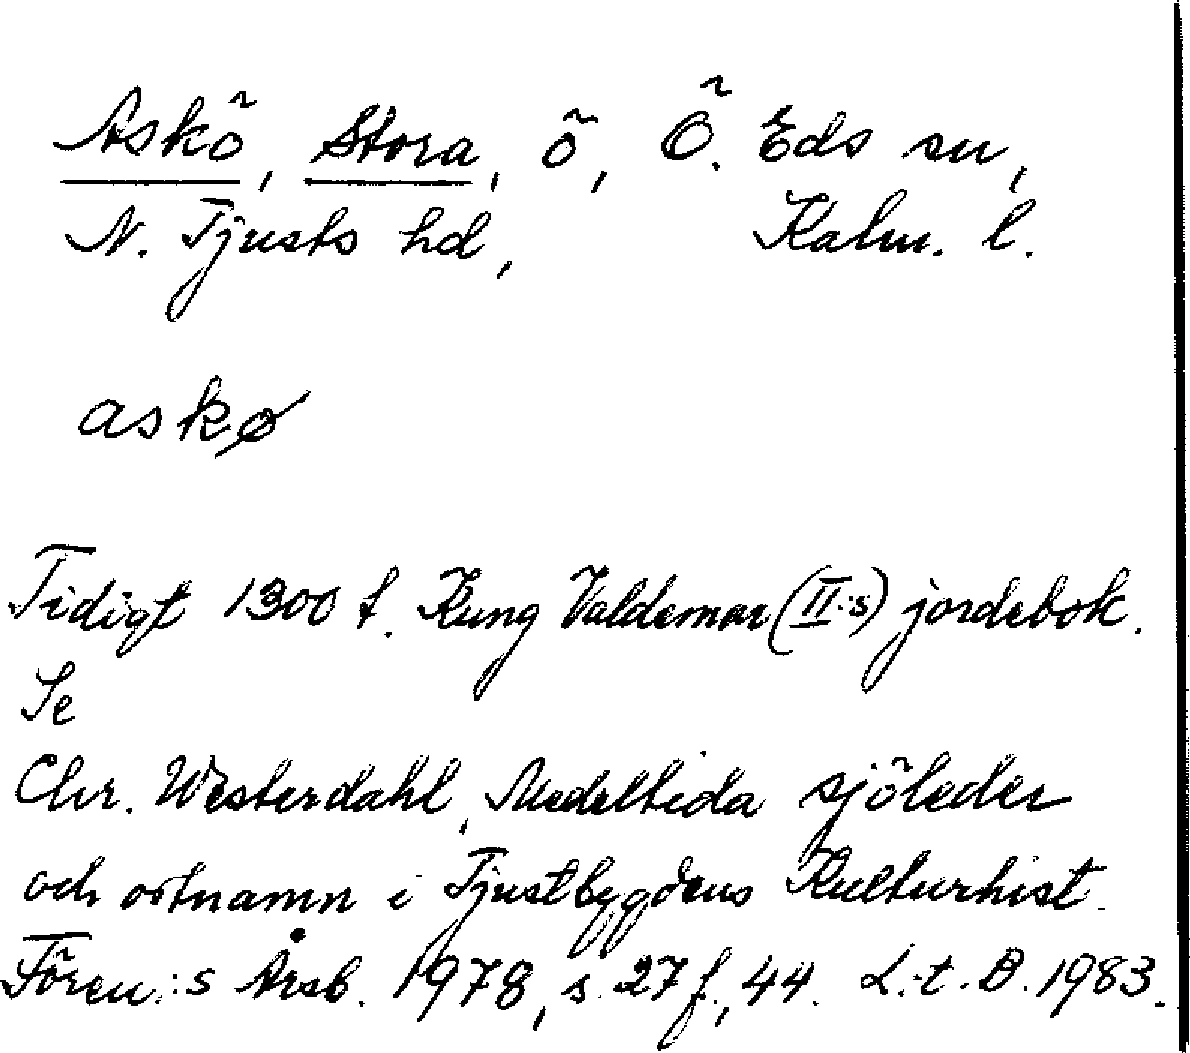 Askö, Stora, ö, Ö. Eds sn,
N. Tjusts hd, Kalm. l.
askø
Tidigt 1300 t. Kung Valdemar (II:s) jordebok.
Se
Chr. Westerdahl, Medeltida sjöleder
och ortnamn i Tjustbygdens Kulturhist.
Fören:s Årsb. 1978, s. 27 f., 44. L.t.B. 1983.